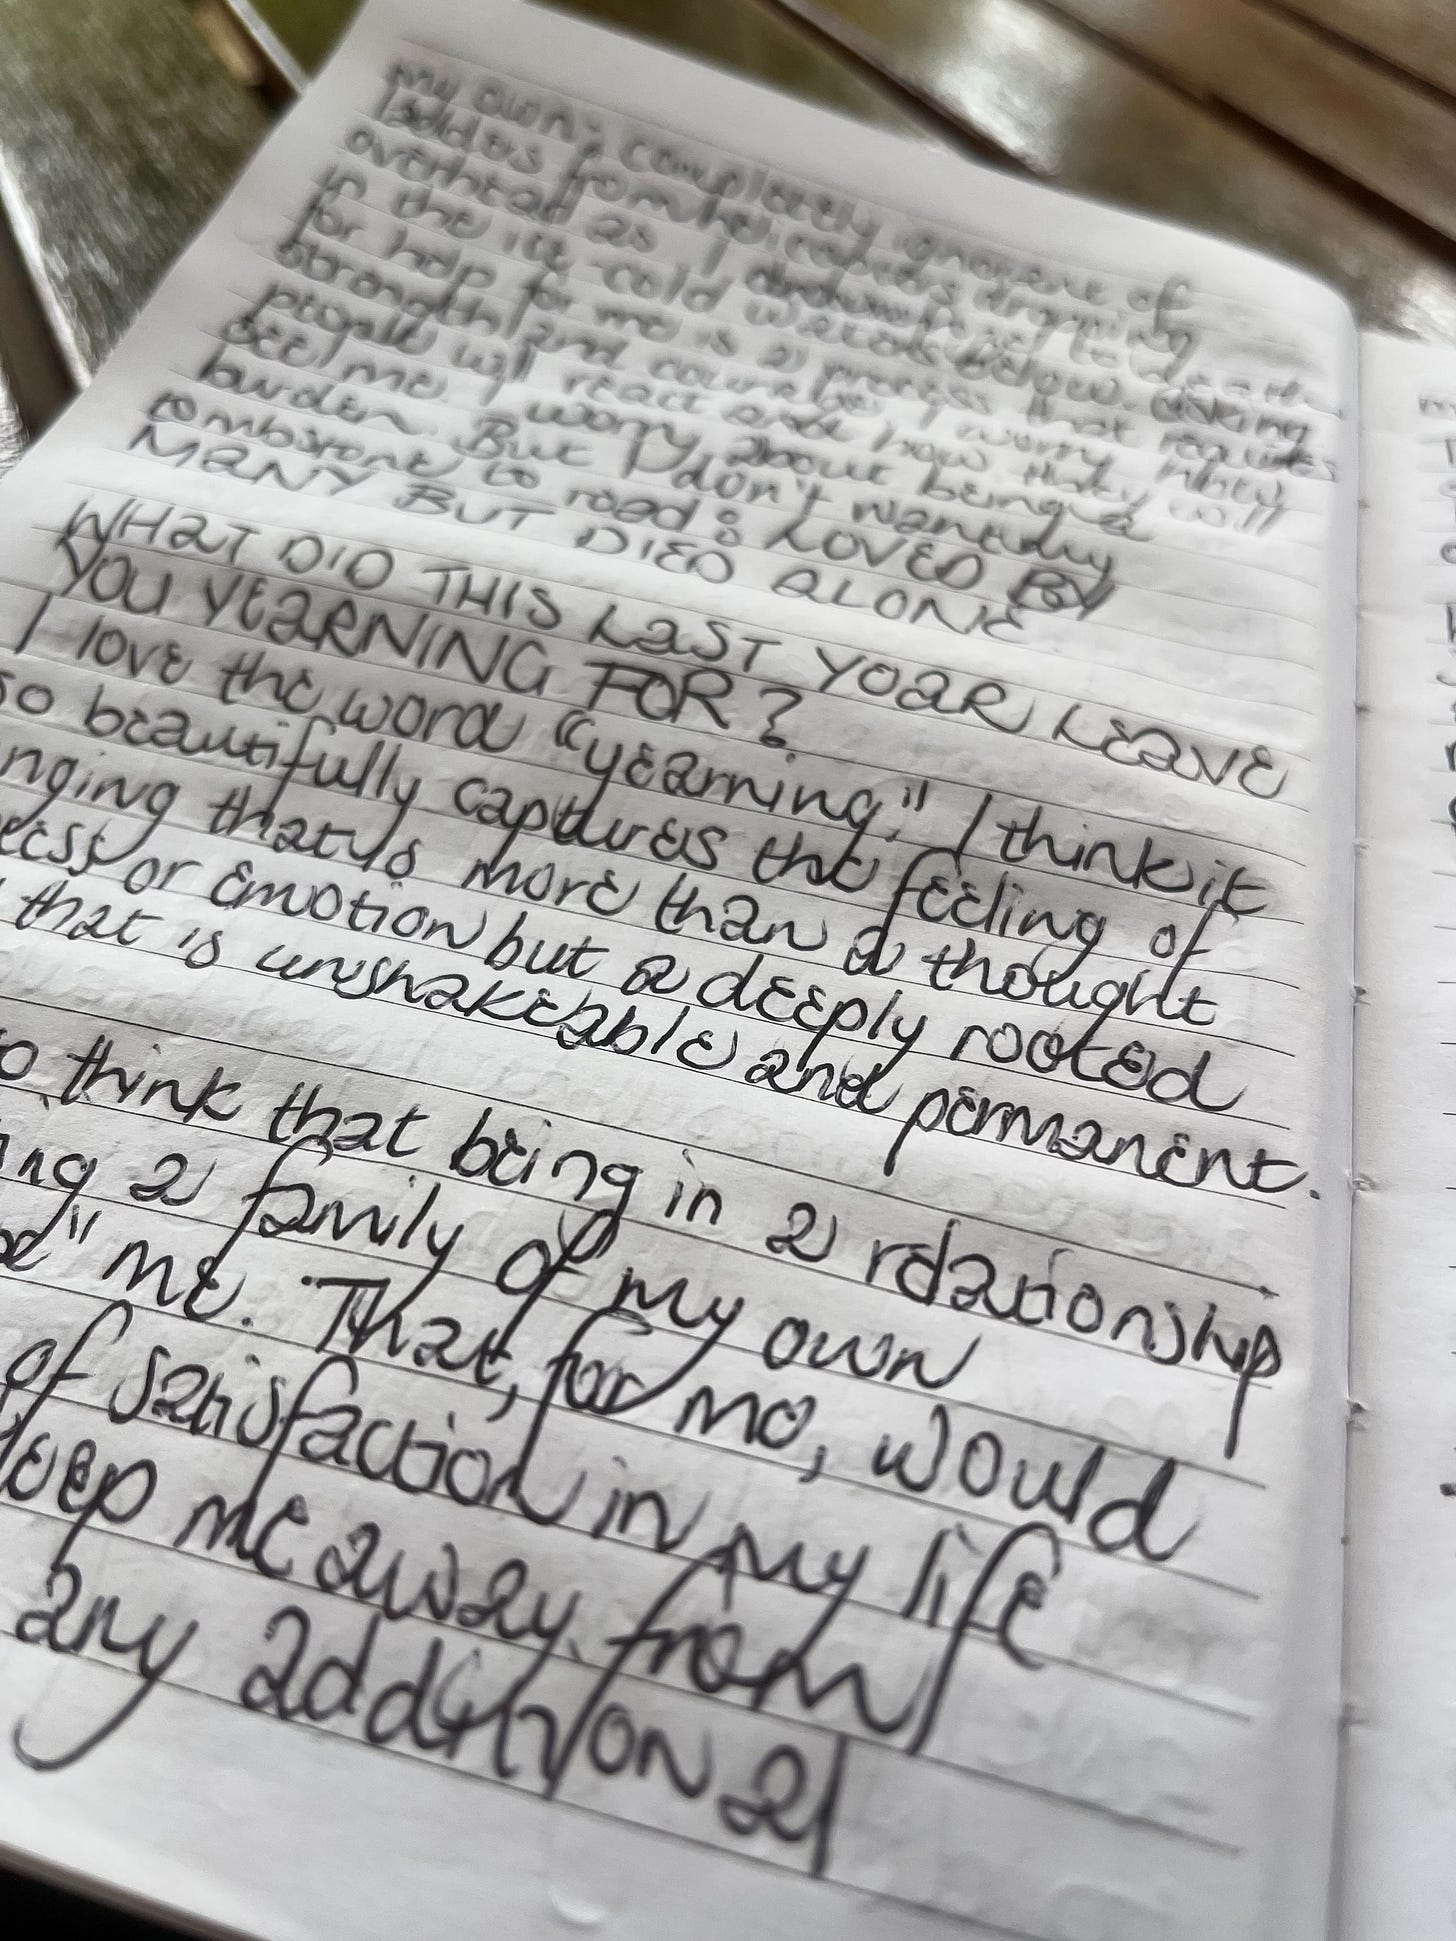 my own, completely ignorant of
ladders from helicopters dropping
overhead as I drown to death
in the ice cold waters below. Asking
for help for me is a process that requires
strength and courage. I worry how
people will react and how they will
see me. I worry about being a
burden. But I don't want my
tombstone to read: LOVED BY
MANY BUT DIED ALONE
WHAT DID THIS LAST YEAR LEAVE
YOU YEARNING FOR?
I love the word "yearning." I think it
so beautifully captures the feeling of
nging that is more than a thought
or emotion but a deeply rooted
that is unshakeable and permanent.
to think that being in a relationship
ing a family of my own
me. That, for me, would
of satisfaction in my life
keep me away from
any additional